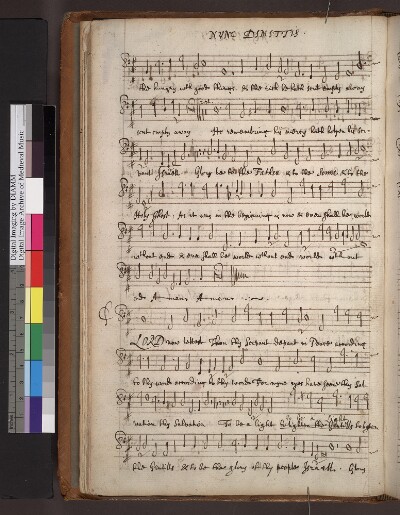 NUNC DIMITTIS.
the hungry with good things. & the rich he hath sent empty away
sent empty away He remembring his mercy hath holpen his ser
vant Israell. Glory be to the Father & to the Sonne & to the
Holy Ghost. As it was in the beginning is now & ever shall be world
without end & ever shall be world without end world without
end Amen Amen.
LORD now lettest Thou thy Servant depart in Peace according
to thy word according to thy word For myne eyes have seene thy Sal
vation thy Salvation To be a light to lighten the Gentills to lighten
the Gentills & to be the glory of thy people Israell. Glory
Digital Imaging by DIAMM
Digital Image Archive of Medieval Music